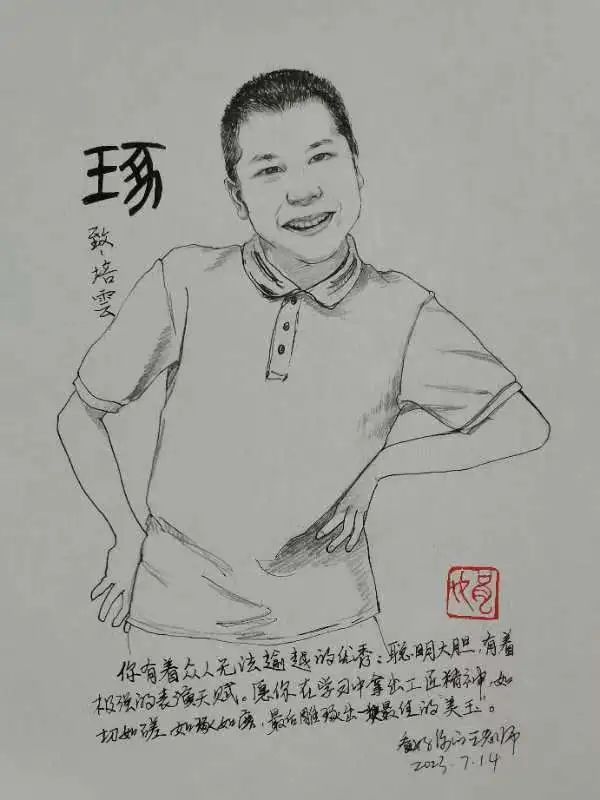 琢
致、培雲
你有着众人无法逾越的优秀：聪明大胆，有着
极强的表演天赋。愿你在学习中拿出工匠精神，如
切如磋，如琢如磨，最后雕琢出一最佳的美玉。
看好你的王老师
2023.7.14